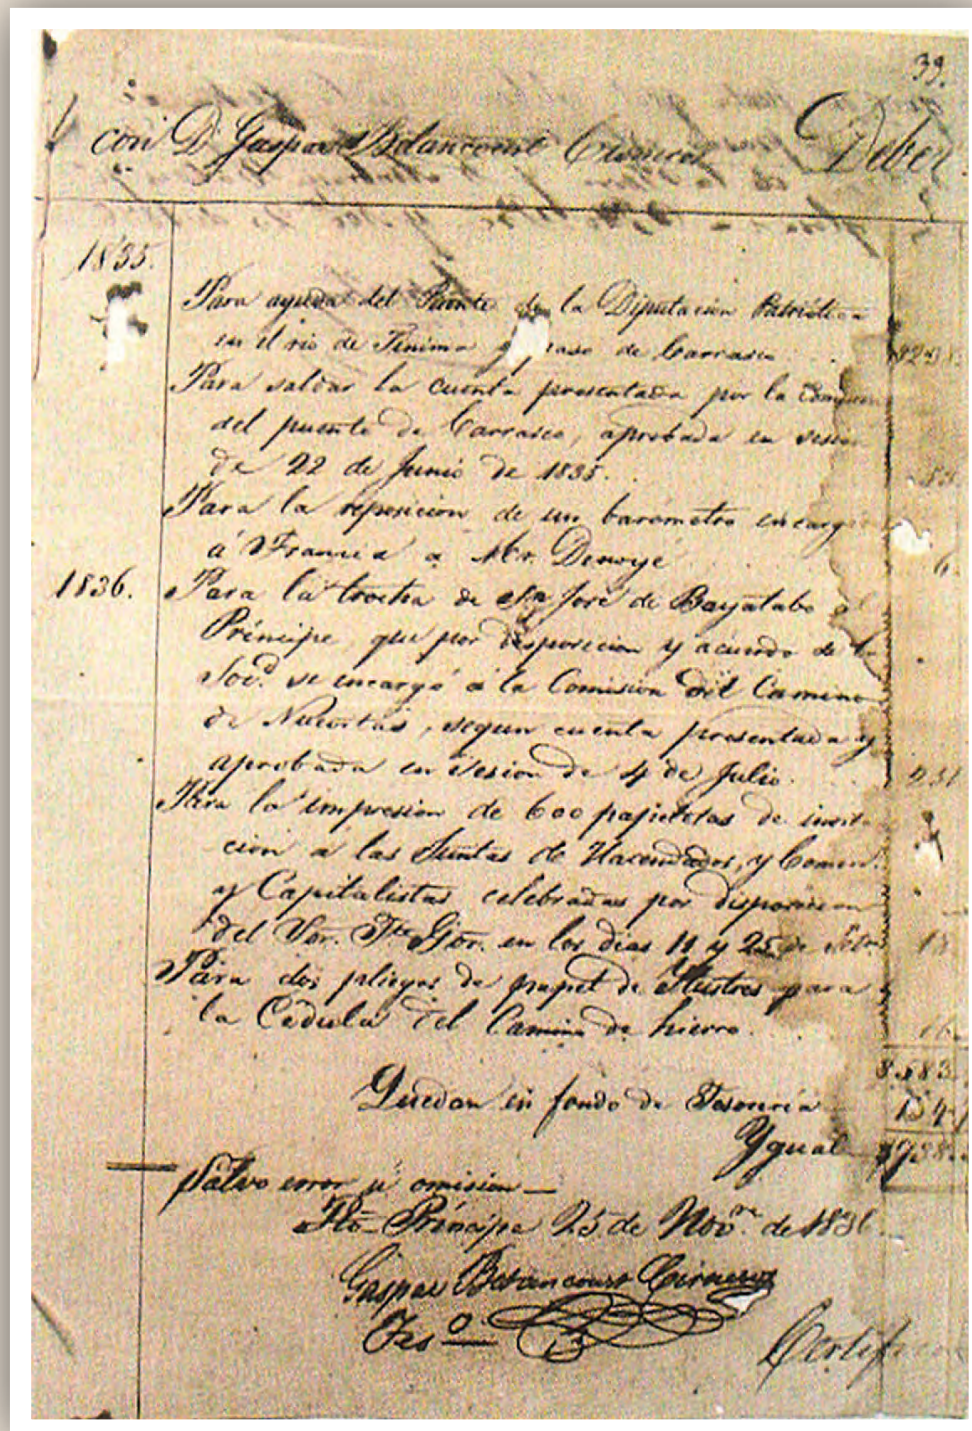 39.
con D. Gaspar Betancourt Cisneros Deber
1835.
Para ayuda del Puente de la Diputacion Patriótica
en el rio de Tinima y paso de Carrasco
Para saldar la cuenta presentada por la Comision
del puente de Carrasco, aprobada en sesion
de 22 de Junio de 1835.
Para la reposicion de un barómetro encarg
á Francia a Mr.
6.
1836. Para la trocha de Sn José de Bayatabo al
Príncipe, que por disposicion y acuerdo de la
Socd. se encargó á la Comision del Camino
de Nuevitas, segun cuenta presentada y
aprobada en sesion de 4 de Julio.
Para la impresion de 600 papeletas de invita
cion á las Juntas de Hacendados, y Comerc.
y Capitalistas celebradas por disposicion
del Sor. Tte Gor. en los dias 11 y 25 de
Para dos pliegos de papel de Ilustres para
la Cédula del Camino de hierro.
Quedan en fondo de Tesoreria
Ygual
Salvo error ú omision—
Pto-Príncipe 25 de Novre. de 1836.
Gaspar Betancourt Cisneros
Teso